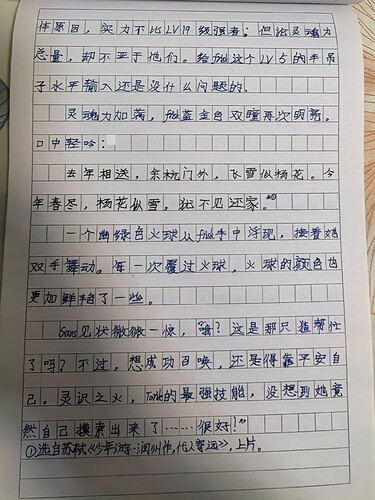 体原因，实力不比LV19级强者；但论灵魂力
总量，却不亚于他们。给frisk这个LV5的半吊
子水平输入还是没什么问题的。
灵魂力加满，frisk蓝金色双瞳再次明亮。
口中轻吟：
去年相送，余杭门外，飞雪似杨花。今
年春尽，杨花似雪，犹不见还家。"①
一个幽绿色火球从frisk手中浮现，接着她
双手舞动。每一次覆过火球，火球的颜色也
更加鲜艳了一些。
Sans见状微微一惊，"嗯？这是那只羊帮忙
了吗？不过，想成功召唤，还是得靠平安自
己。灵识之火，Toriel的最强技能，没想到她竟
然自己摸索出来了……很好！"
①选自苏轼《少年游·润州作，代人寄远》，上片。